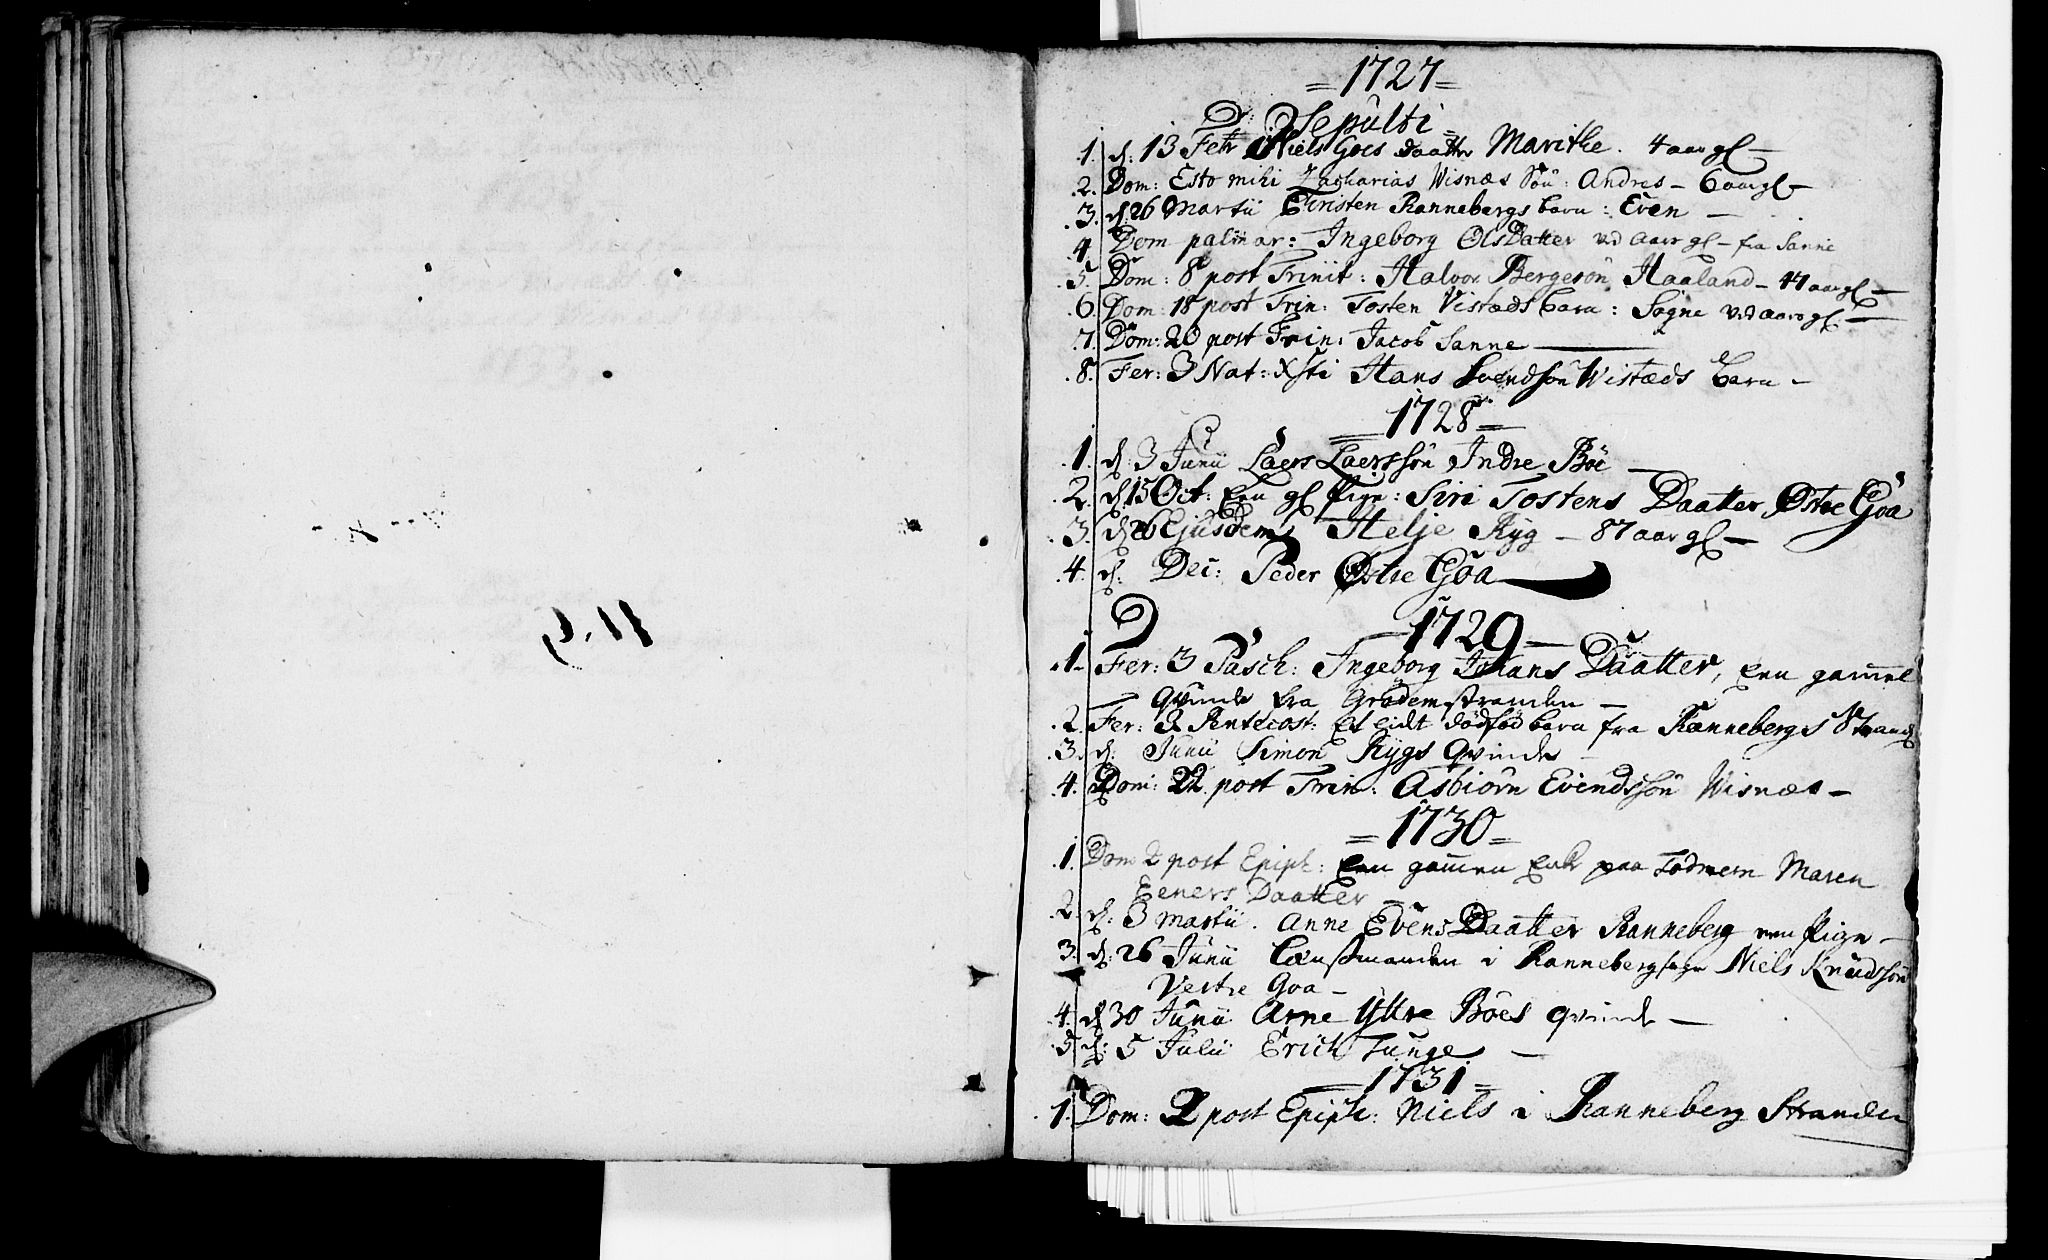 = 1727 =
Sepulti =
1. d: 13 Febr Niels Goes Daatter Marithe. 4 aar gl –
2. Dom: Esto mihi Zacharias Wisnæs Søn: Andres – 6 aar gl –
3. d: 26 Martii Christen Rannebergs barn: Even –
4. Dom palmar: Ingeborg OlsDatter vd aars gl – fra Sanne
5. Dom: 8 post Trinit: Halvor Bergesøn Haaland – 44 aar gl –
6. Dom: 18 post Trin: Tosten Vistæds barn: Signe ved aars gl. –
7. Dom: 20 post Trin: Jacob Sanne –
8. Fer: 3 Nat: Xsti Hans Svendsøn Wistæds barn –
= 1728 =
1. d: 3 Junii Laers Laersøn Indre Böe –
2. d: 15 Oct: Een gl Pige: Siri Tostens Daatter Østre Goa
3. d: 26 Ejusdem Helje Ryg – 87 aar gl –
4. d: Dec: Peder Østre Goa
– 1729 –
1. Fer: 3 Pasch: Ingeborg Johans Daatter, een gammel
Qvinde fra Grødemstranden –
2. Fer: 3 Pentecost: Et lidt dødfød barn fra Rannebergs Strand
3. d: Junii Simon Rygs Qvinde –
4. Dom: 22 post Trin: Asbiørn Evendssøn Wisnæs –
= 1730 =
1. Dom 2 post Epiph: Een gammen Enke paa Todnem Maren
Eeners Daatter –
2. d: 3 Martii. Anne Evens Daatter Ranneberg een Pige –
3. d: 26 Junii Lænsmanden i Ranneberg sogn Niels Knudssøn
Vestre Goa –
4. d: 30 Junii Arne Yttre Böes qvinde –
5. d: 5 Julii Erich Tunge –
= 1731 =
1. Dom: 2 post Epiph: Niels i Ranneberg Stranden